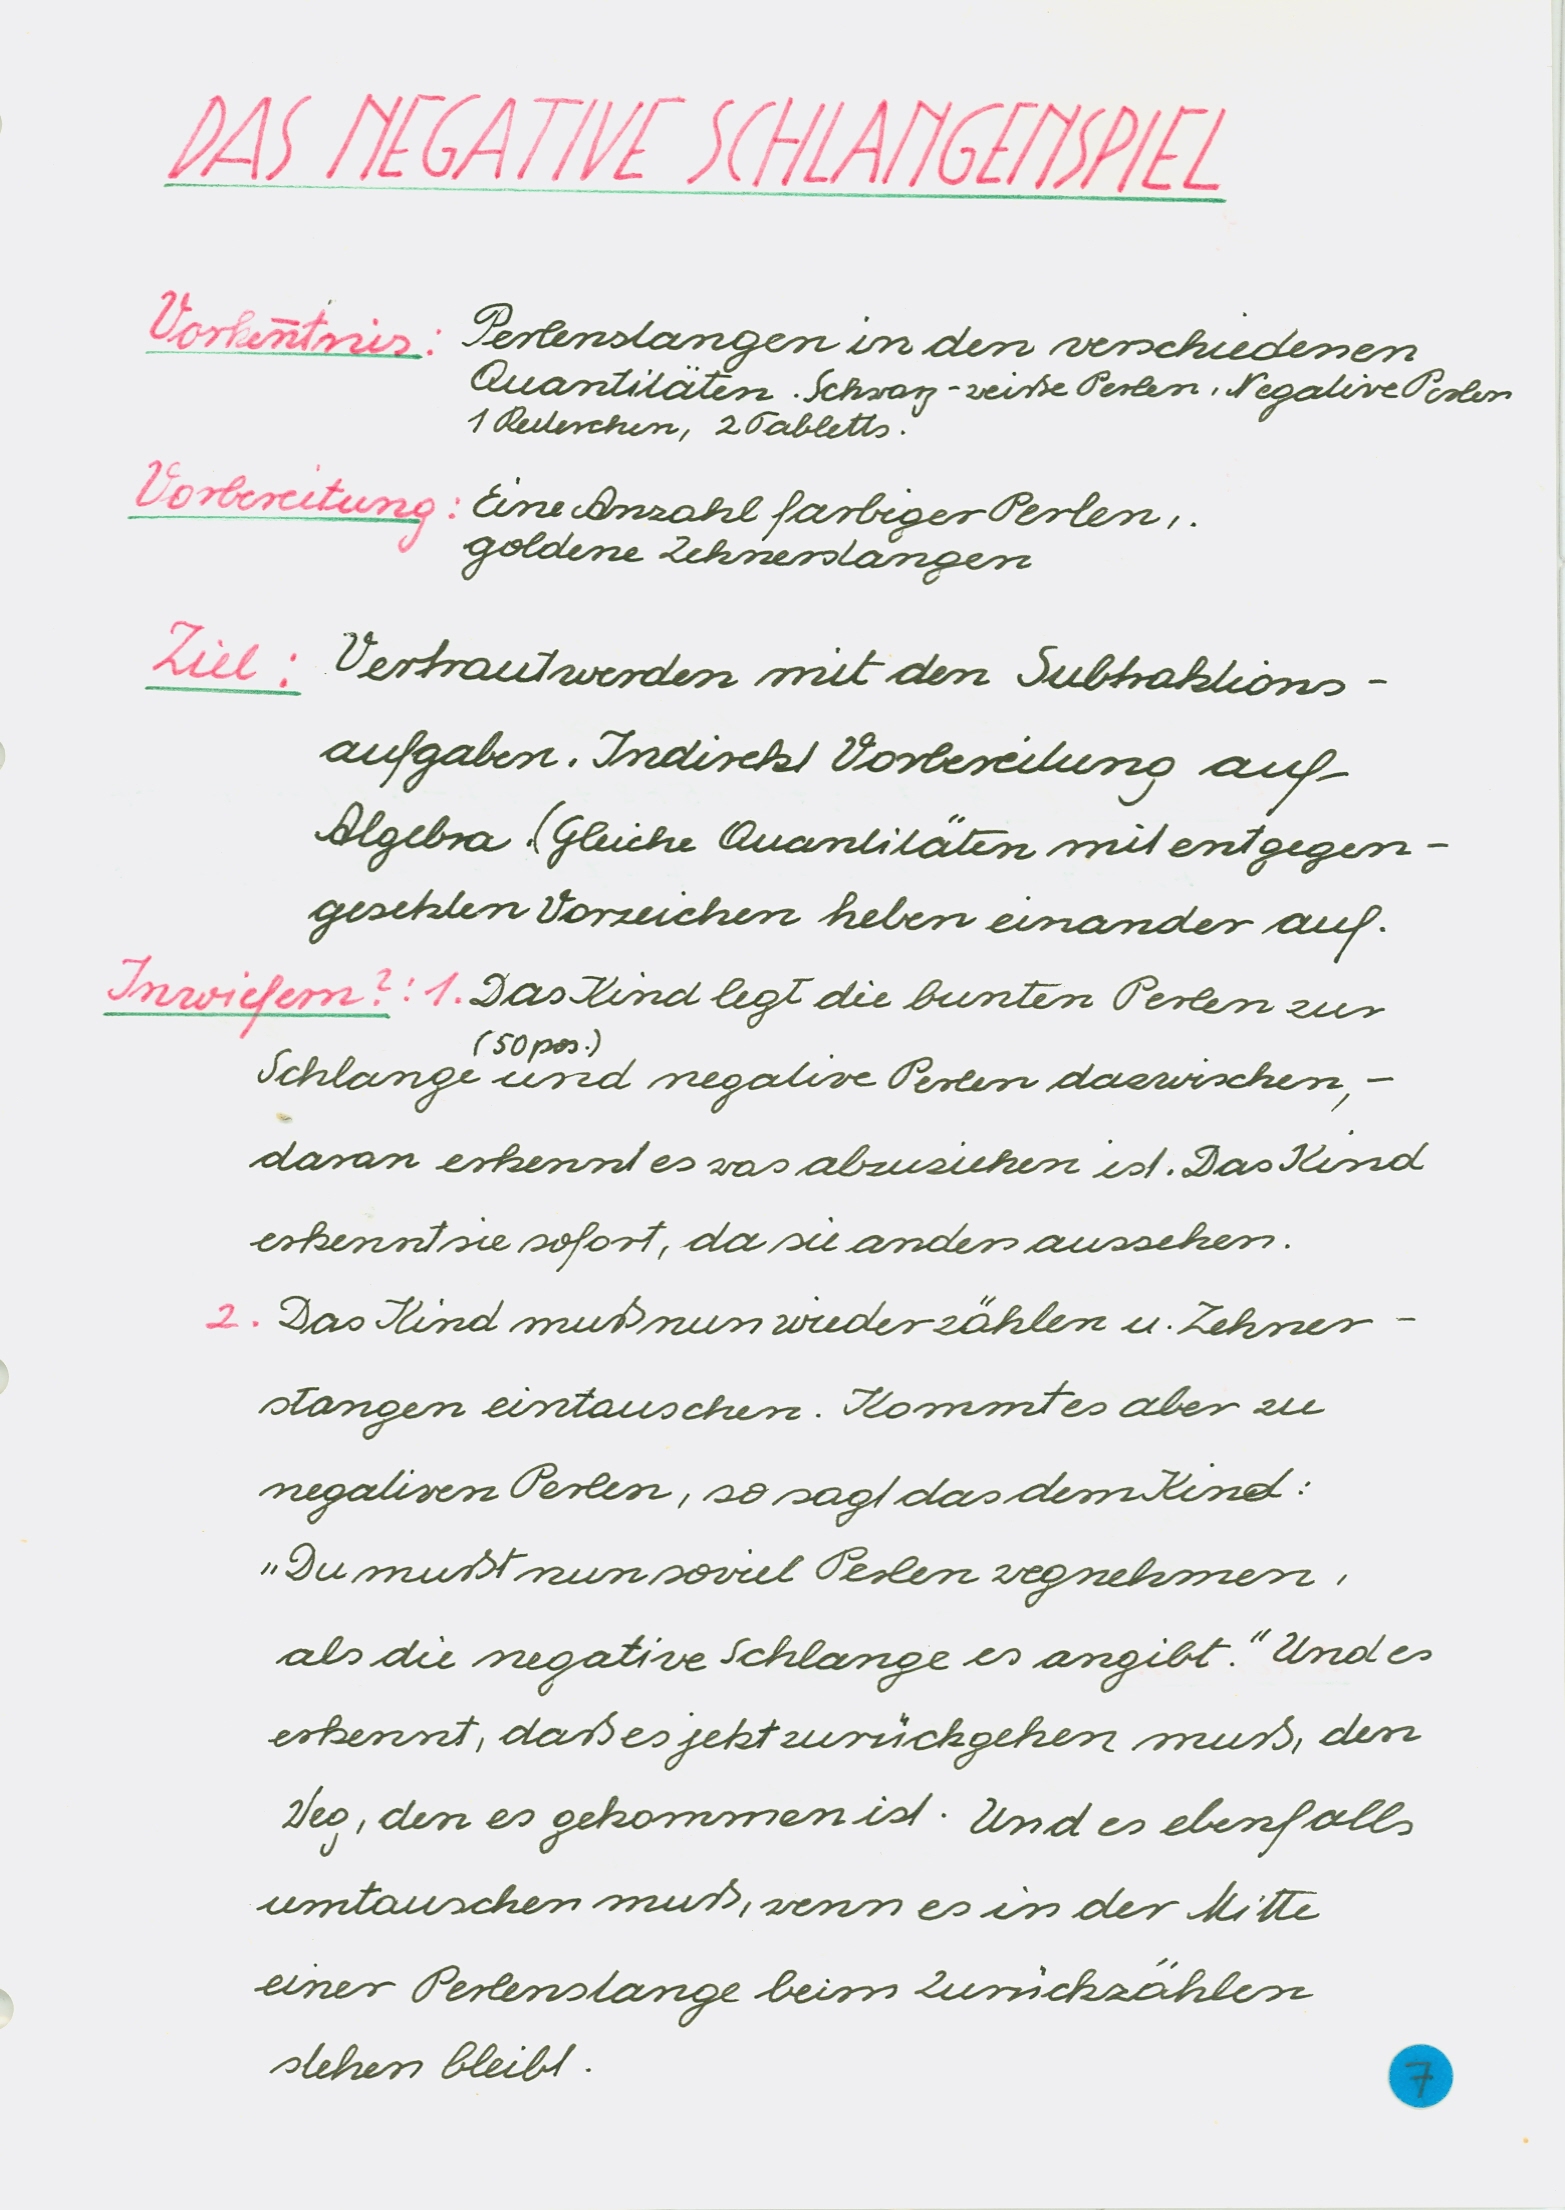 DAS NEGATIVE SCHLANGENSPIEL
Vorken̄tnis: Perlenstangen in den verschiedenen
Quantitäten. Schwarz-weiße Perlen, Negative Perlen
1 Reiterchen, 2 Tabletts.
Vorbereitung: Eine Anzahl farbiger Perlen,.
goldene Zehnerstangen
Ziel: Vertrautwerden mit den Subtraktions-
aufgaben. Indirekt Vorbereitung auf
Algebra. (Gleiche Quantitäten mit entgegen-
gesetzten Vorzeichen heben einander auf.
Inwiefern?: 1. Das Kind legt die bunten Perlen zur
(50 pos.)
Schlange und negative Perlen dazwischen, -
daran erkennt es was abzuziehen ist. Das Kind
erkennt sie sofort, da sie anders aussehen.
2. Das Kind muß nun wieder zählen u. Zehner-
stangen eintauschen. Kommt es aber zu
negativen Perlen, so sagt das dem Kind:
"Du mußt nun soviel Perlen wegnehmen,
als die negative Schlange es angibt." Und es
erkennt, daß es jetzt zurückgehen muß, den
Weg, den es gekommen ist. Und es ebenfalls
umtauschen muß, wenn es in der Mitte
einer Perlenstange beim Zurückzählen
stehen bleibt.
7